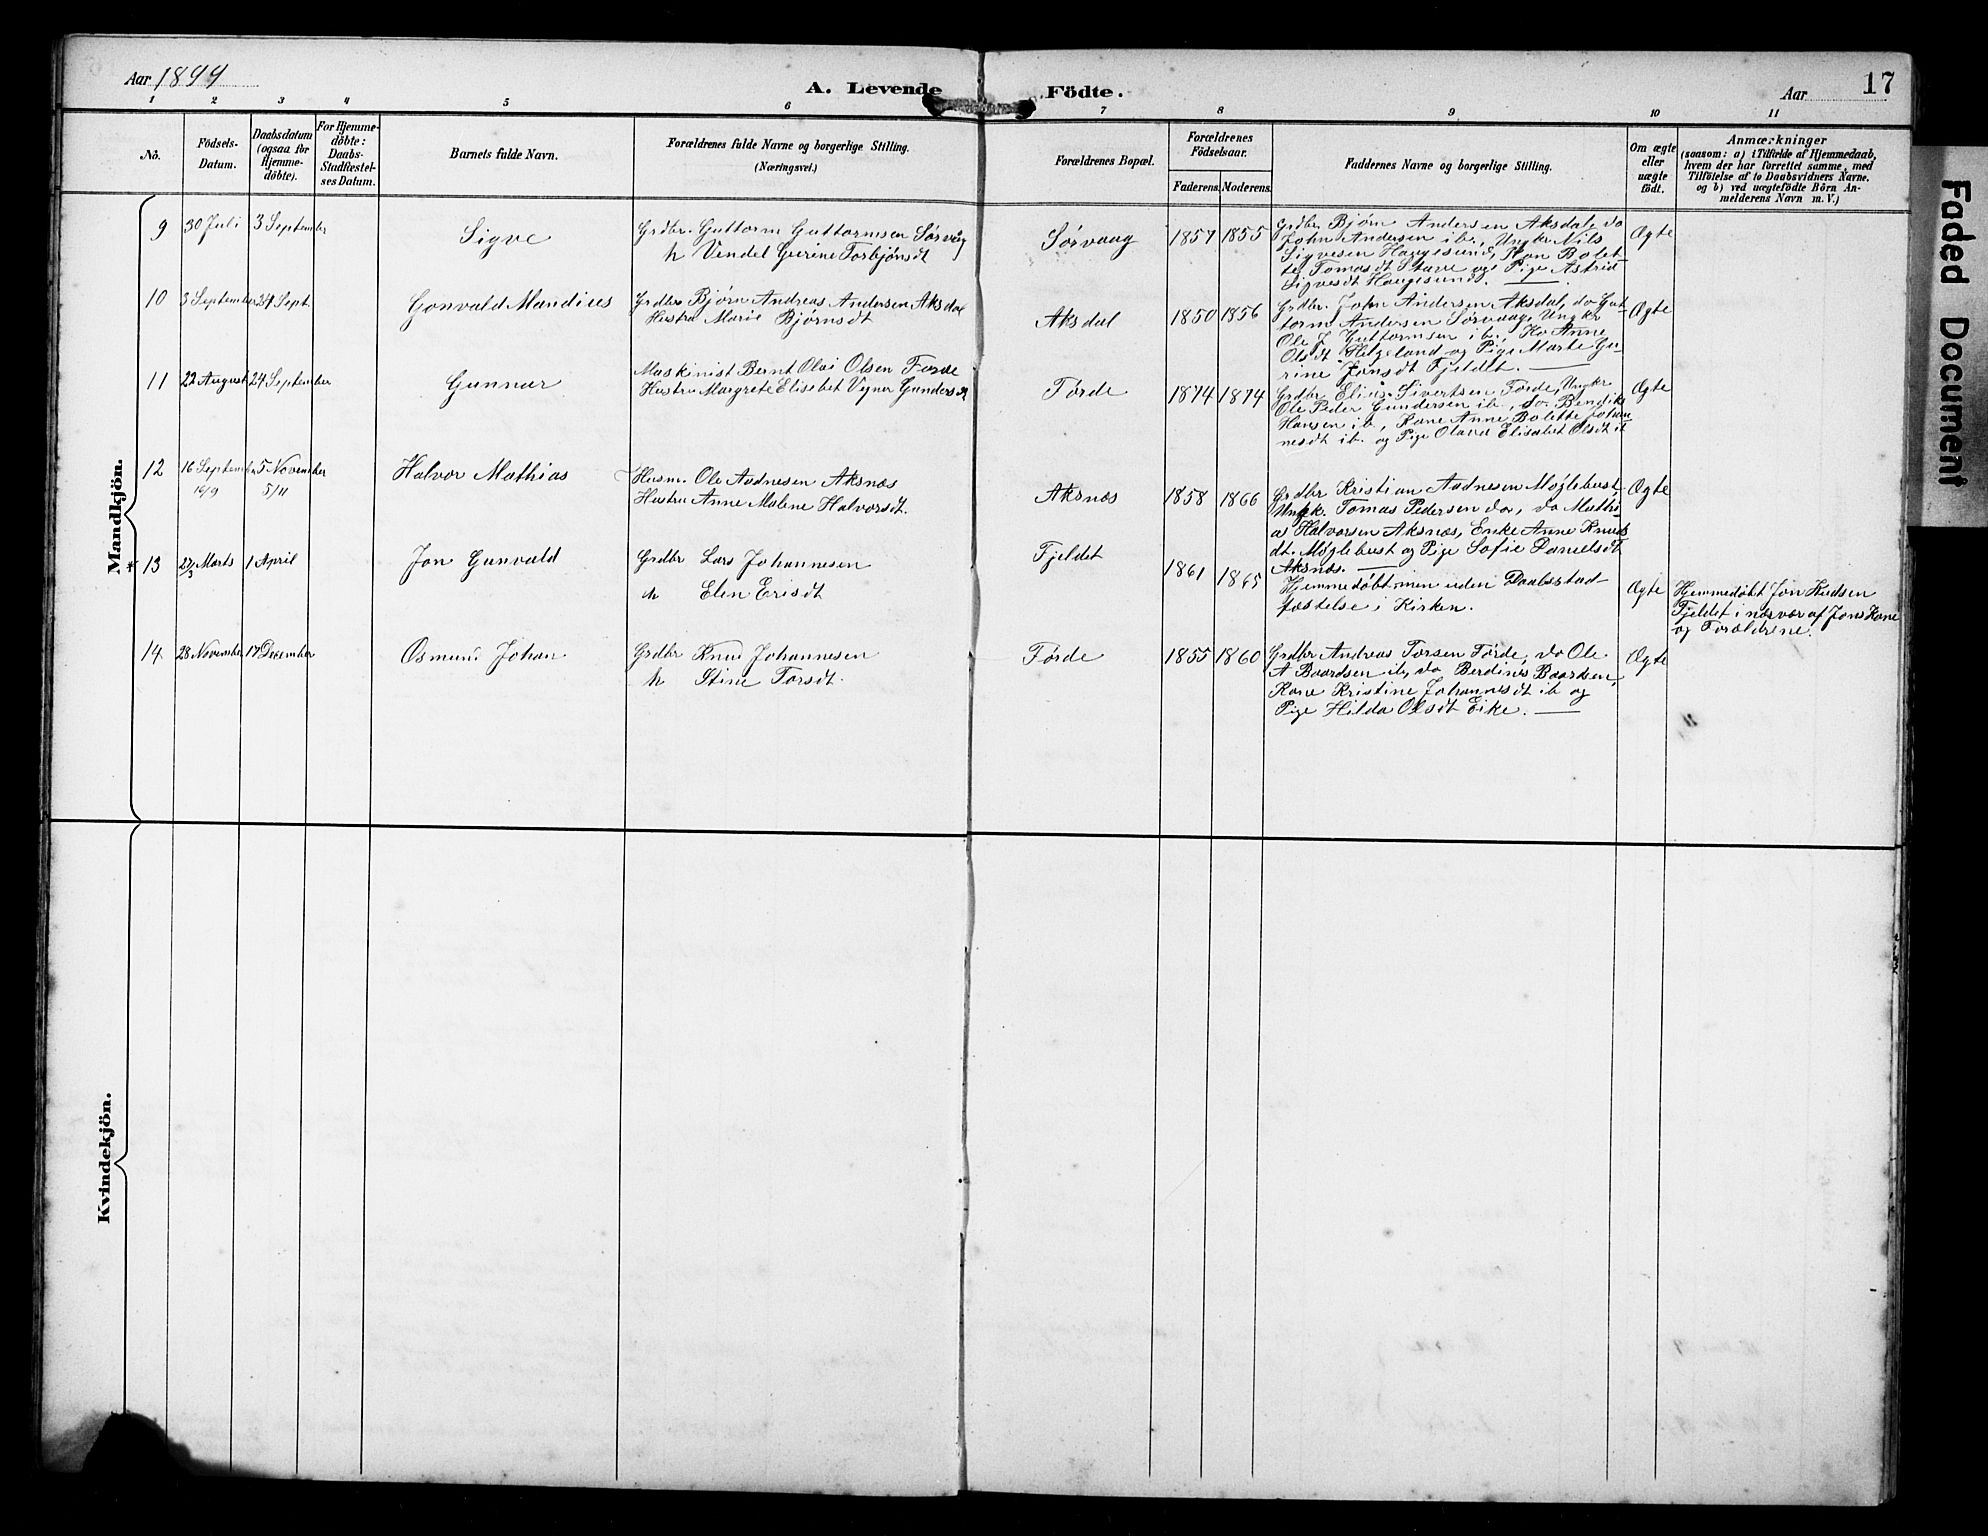 Aar 1899
A. Levende Födte.
Aar
17
1 2 3 4 5 6 7 8 9 10 11
No.
Födsels-
Datum.
Daabsdatum
(ogsaa for
Hjemme-
döbte).
For Hjemme-
döbte:
Daabs-
Stadfæstel-
ses Datum.
Barnets fulde Navn.
Forældrenes fulde Navne og borgerlige Stilling.
(Næringsvei.)
Forældrenes Bopæl.
Forældrenes
Födselsaar.
Faderens. Moderens.
Faddernes Navne og borgerlige Stilling.
Om ægte
eller
uægte
födt.
Anmærkninger
(saasom: a) i Tilfælde af Hjemmedaab,
hvem der har forrettet samme, med
Tilföielse af to Daabsvidners Navne,
og b) ved uægtefödte Börn An-
melderens Navn m. V.)
Mandkjön.
9 30 Juli 3 September Sigve
Grdbr. Guttorm Guttormsen Sørvåg
h Vendel Gurine Torbjönsdt
Sørvaag 1857 1855
Grdbr Bjørn Andersen Aksdal, do
John Andersen ib., Ungkr. Nils
Sigvesen Haugesund, Kon Bolet-
te Tomasdt Stave og Pige Astrid
Sigvesdt Haugesund.
Ægte
10 3 September 24 Sept. Gonvald Mandius
Grdbr Bjørn Andreas Andersen Aksdal
Hustru Marie Bjørnsdt
Aksdal 1850 1856
Grdbr. John Andersen Aksdal, do Gut-
torm Andersen Sørvaag, Ungkr
Ole J. Guttormsen ib., Ko Anne
Olsdt Helgeland og Pige Marte Gu-
rine Jonsdt Fjeldet.
Ægte
11 22 August 24 September Gunnar
Maskinist Bernt Olai Olsen Førde
Hustru Margrete Elisabet Vigner Gundersdt
Førde 1874 1874
Grdbr Elias Sivertsen Førde, Ungkr
Ole Peder Gundersen ib., do. Bendik
Hansen ib, Kone Anne Bolette Johan-
nesdt ib. og Pige Olava Elisabet Olsdt ib
Ægte
12 16 September 5 November Halvor Mathias
16/9 5/11
Husm. Ole Aadnesen Aksnæs
Hustru Anne Malene Halvorsdt.
Aksnæs 1858 1866
Grdbr Kristian Aadnesen Møglebust,
Ungk. Tomas Pedersen do, do Mathi-
as Halvorsen Aksnæs, Enke Anne Knuds
dt. Møglebust og Pige Sofie Danielsdt
Aksnæs.
Ægte
13 27/3 Marts 1 April Jon Gunvald
Grdbr Lars Johannesen
h Elen Erisdt
Fjeldet 1861 1865
Hjemmedøbt, men uden Daabsstad-
fæstelse i Kirken.
Ægte
Hjemmedøbt Jon Knudsen
Fjeldet i nærvær af Jons Kone
og Forældrene.
14 28 November 17 December Osmund Johan
Grdbr Knud Johannesen
h Stine Torsdt.
Førde 1855 1860
Grdbr Andreas Torsen Førde, do Ole
A Baardsen ib, do Berdines Baardsen,
Kone Kristine Johannesdt ib og
Pige Hilda Olsdt Eike.
Ægte
Kvindekjön.
Faded Document